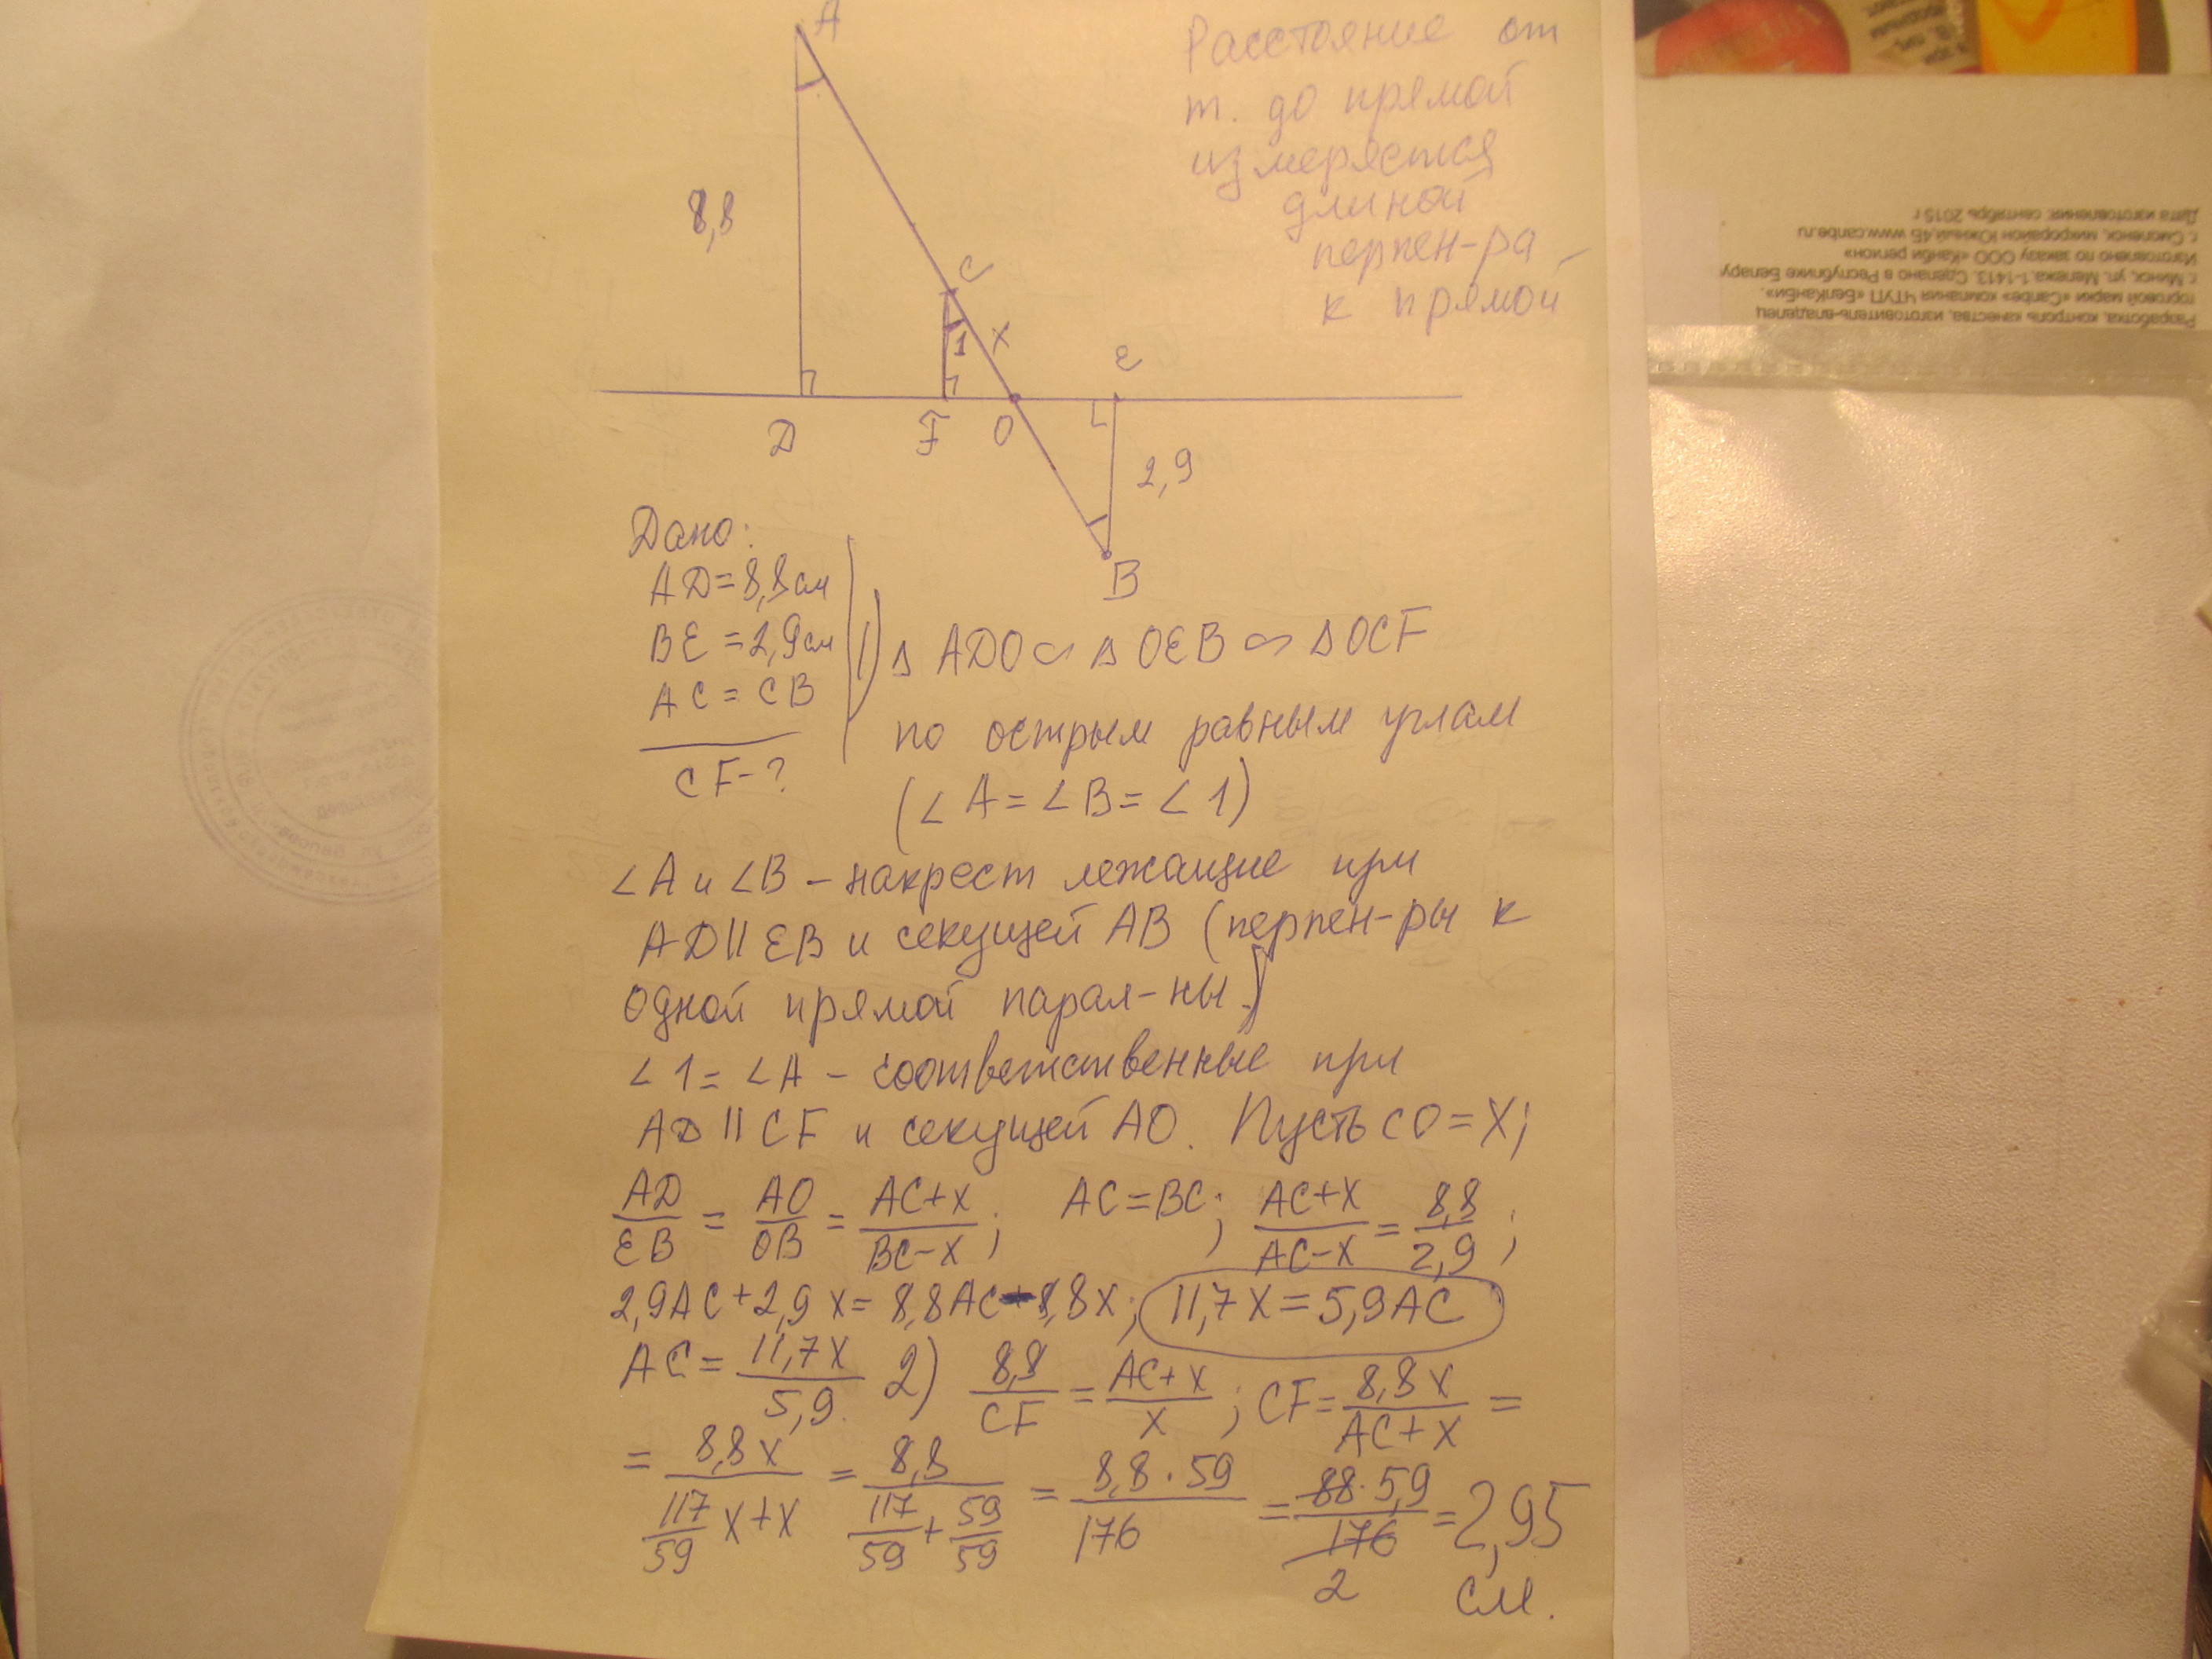 A
Расстояние от
т. до прямой
измеряется
длиной
перпен-ра
к прямой
8,8
C
1
X
E
D
F
O
2,9
B
Дано:
AD = 8,8 см
BE = 2,9 см
AC = CB
CF - ?
1) Δ ADO ∽ Δ OEB ∽ Δ OCF
по острым равным углам
(∠A = ∠B = ∠1)
∠A и ∠B – накрест лежащие при
AD || EB и секущей AB (перпен-ры к
одной прямой парал-ны)
∠1 = ∠A – соответственные при
AD || CF и секущей AO. Пусть CO = X;
AD/EB = AO/OB = AC+X/BC-X; AC = BC; AC+X/AC-X = 8,8/2,9;
2,9AC + 2,9X = 8,8AC - 8,8X; 11,7X = 5,9AC
AC = 11,7X/5,9. 2) 8,8/CF = AC+X/X; CF = 8,8X/AC+X =
= 8,8X/117/59 X+X = 8,8/117/59+59/59 = 8,8·59/176 = 88·5,9/176 2 = 2,95
см.
Разработка, контроль качества, изготовитель-владелец
торговой марки «Canpe» компания ЧТУП «БелКанБи».
г. Минск, ул. Мележа,1-1413. Сделано в Республике Белару
Изготовлено по заказу ООО «Канби регион»
г. Смоленск, микрорайон Южный,4Б www.canbe.ru
Дата изготовления: сентябрь 2015 г